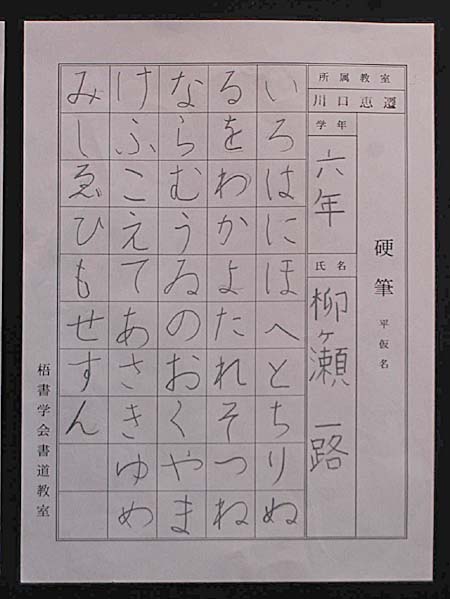 硬筆 平仮名
所属教室
川口恵遷
学年
六年
氏名
柳ヶ瀬 一路
いろはにほへとちりぬ
るをわかよたれそつね
ならむうゐのおくやま
けふこえてあさきゆめ
みしゑひもせすん
梧書学会書道教室